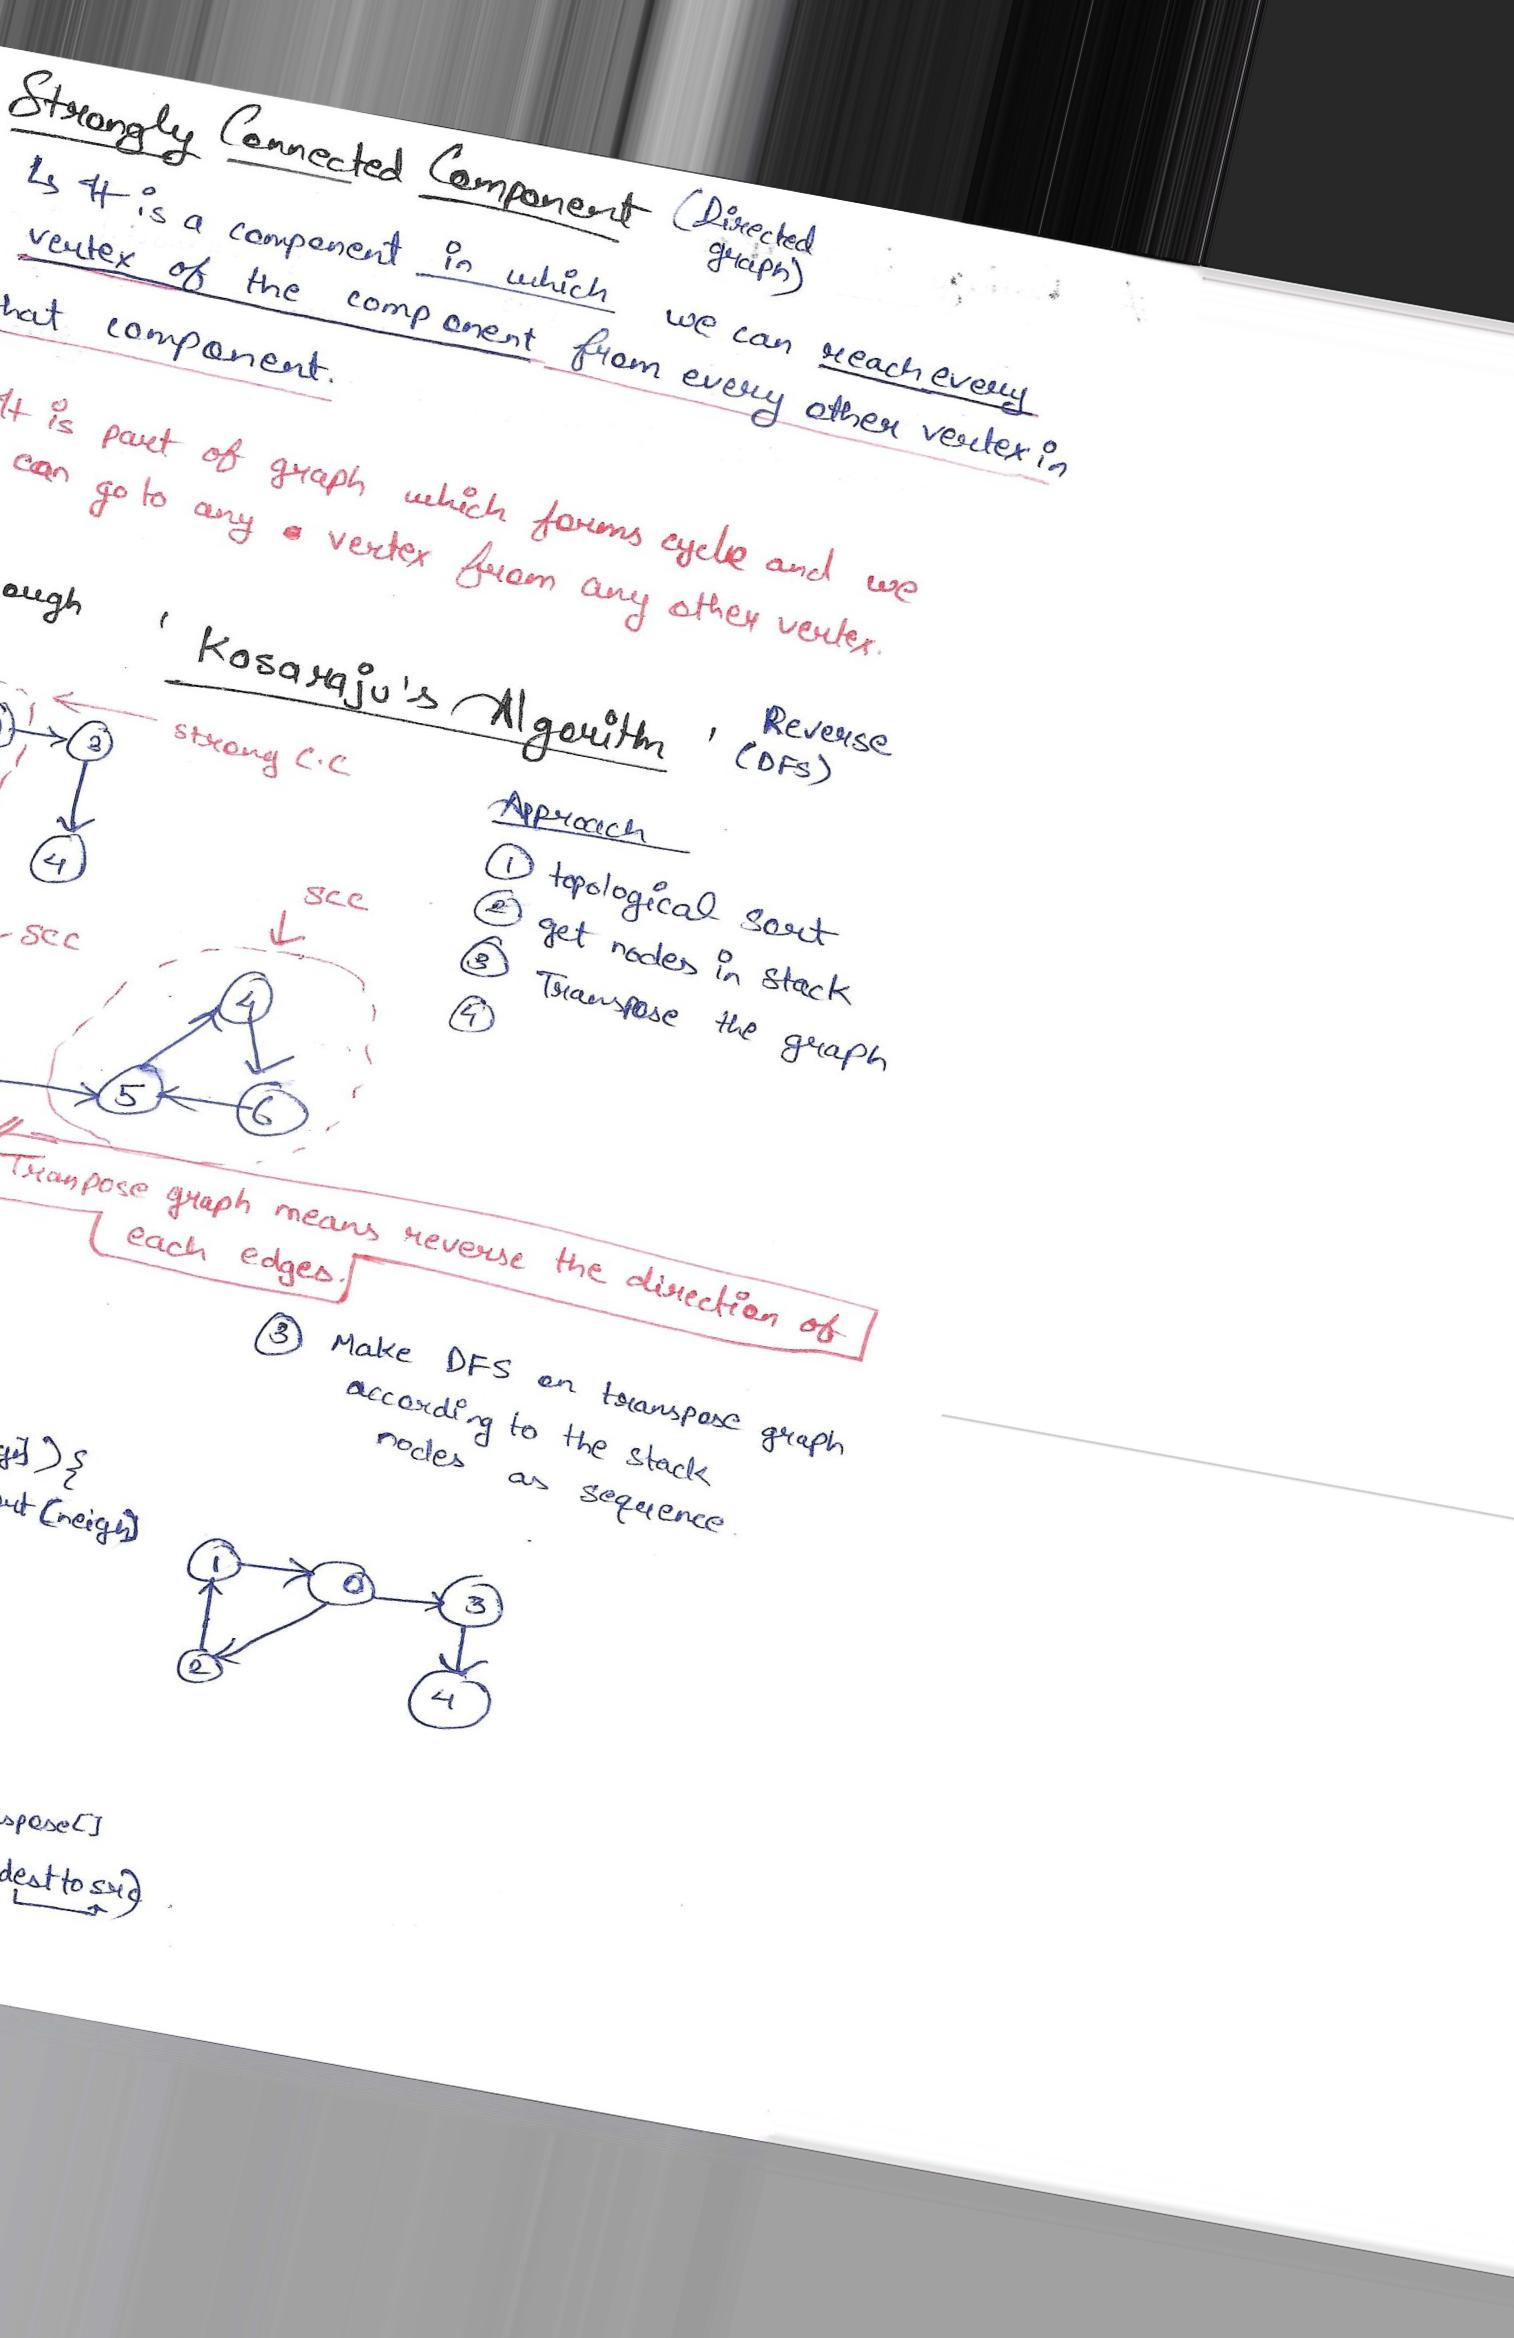 Strongly Connected Component (Directed graph)
↳ It is a component in which we can reach every
vertex of the component from every other vertex in
hat component.
It is part of graph which forms cycle and we
can go to any vertex from any other vertex.
ough ' Kosaraju's Algorithm ' Reverse (DFS)
3
strong C.C
4
Approach
① topological sort
② get nodes in stack
③ Transpose the graph
④
SCC
SCC
4
5
6
Tranpose graph means reverse the direction of
each edges.
③ Make DFS on transpose graph
according to the stack
nodes as sequence.
){
[neigh]
1
0
3
2
4
spose[]
dest to src)